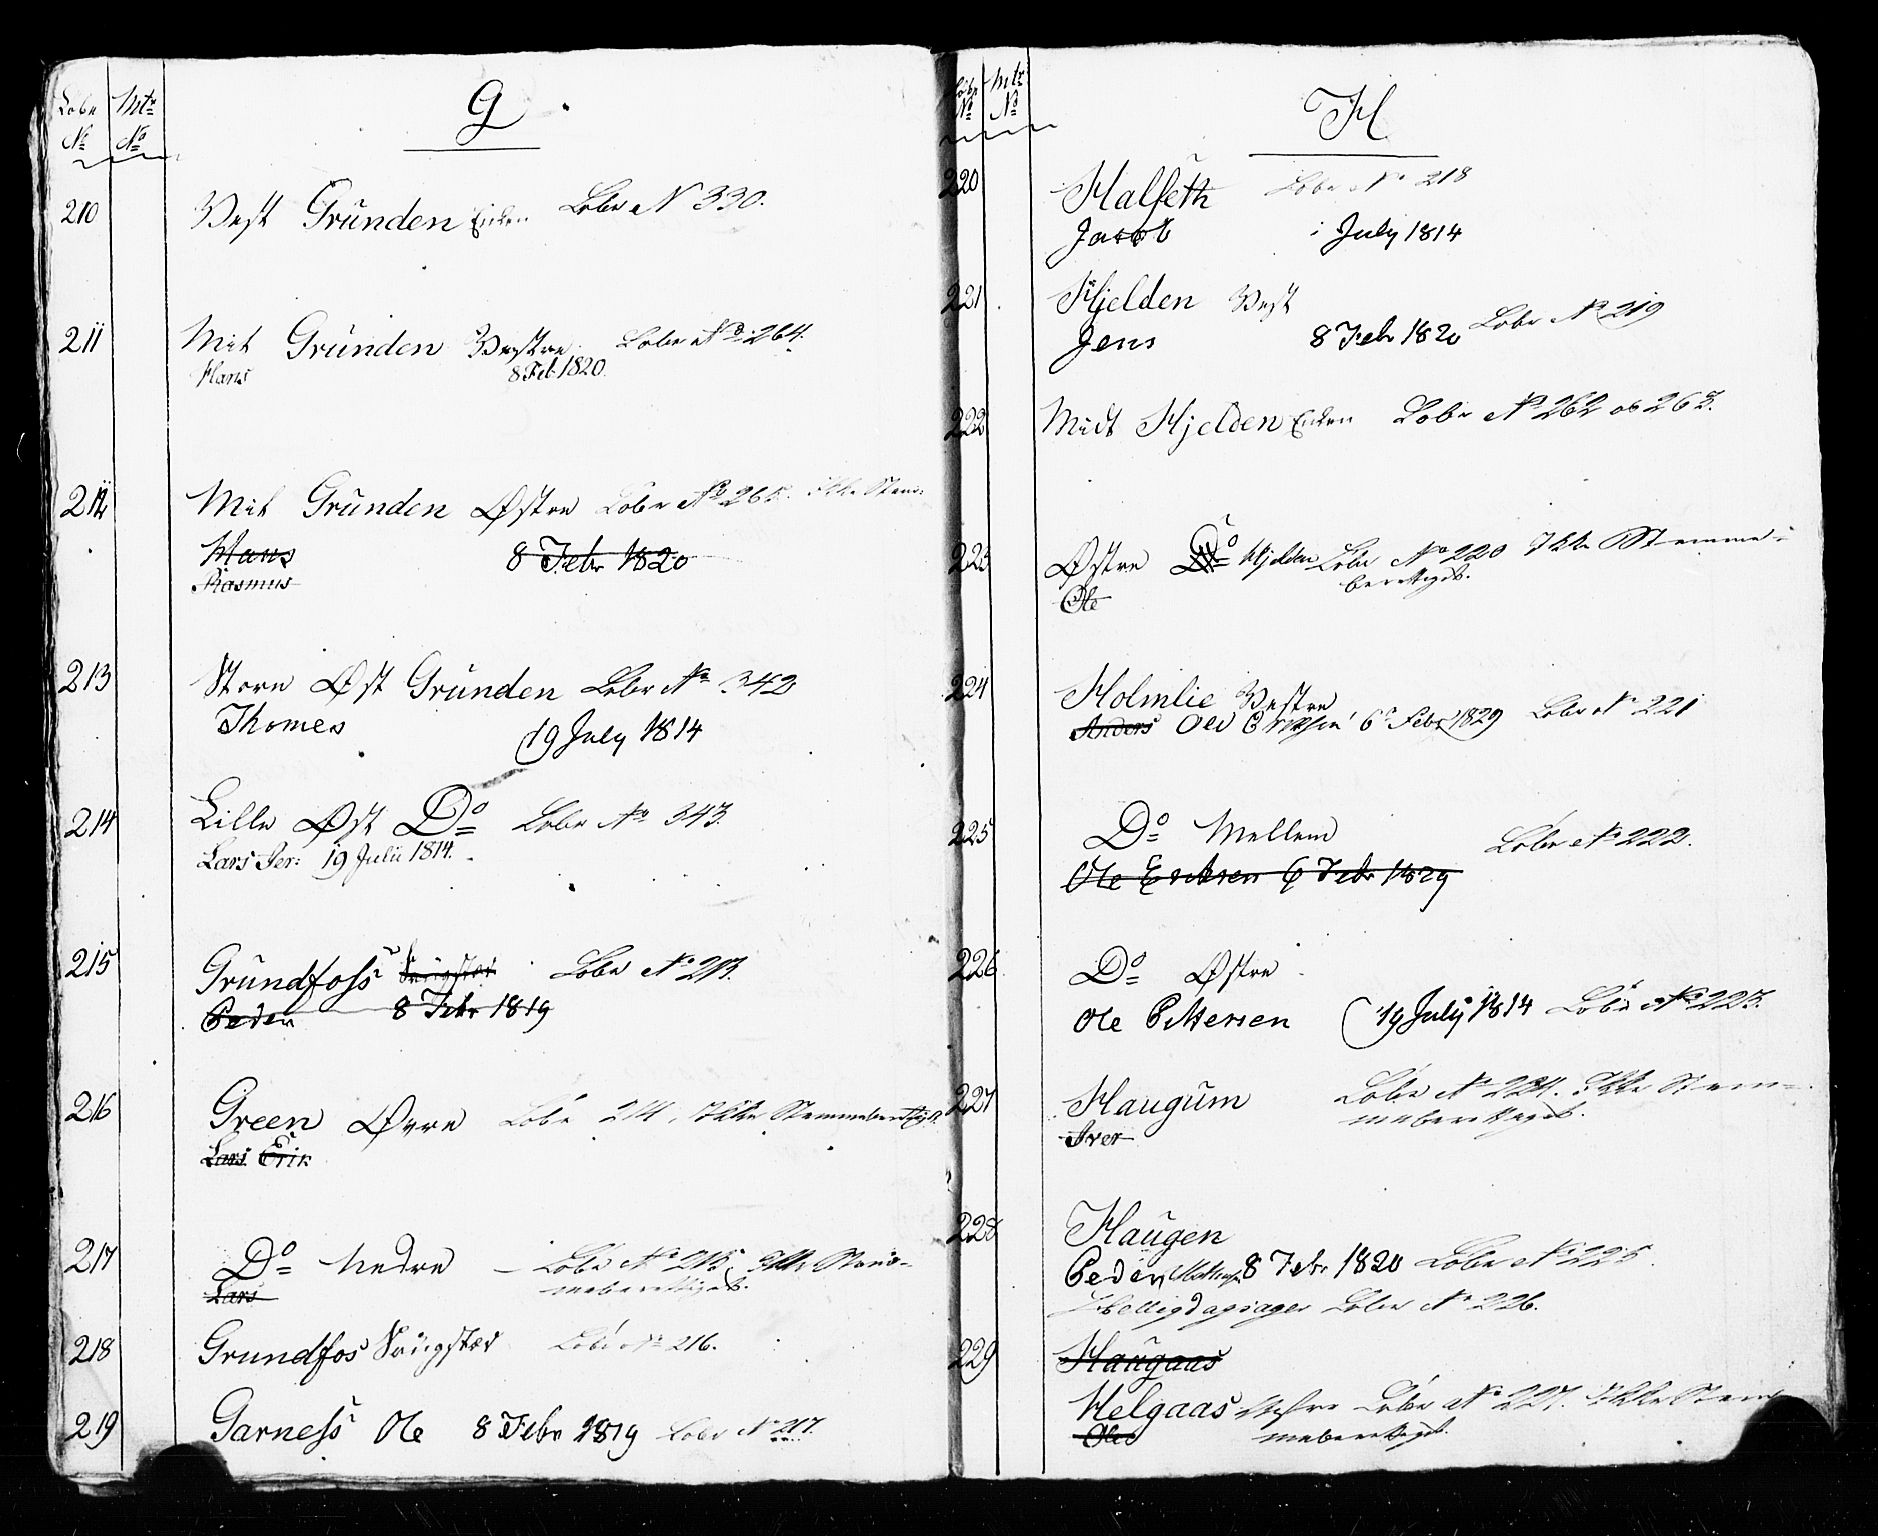 Løbe Mtr G
No No
210 Vest Grunden Enken Løbe N 330.
211 Mit Grunden Vestre Løbe No 264.
Hans 8 Feb 1820.
212 Mit Grunden Østre Løbe No 265. Ikke Stem:
Hans 8 Febr 1820
Rasmus
213 Store Øst Grunden Løbe No 342
Thomes 19 July 1814
214 Lille Øst Do Løbe No 343.
Lars Per: 19 Julii 1814.
215 Grundfoss Løbe No 213.
Peder 8 Febr 1819
216 Green Øvre Løbe 214, Ikke Stemmeberettiget.
Lars Erik
217 Do Nedre – Løbe No 215. Ikke Stem-
meberettiget.
Lars
218 Grundfos Løbe No 216.
219 Garness Ole 8 Febr 1819 Løbe No 217.
Løbe Mtr H
No No
220 Halseth Løbe No 218
Jacob i July 1814
221 Hjelden Vest
Jens 8 Febr 1820 Løbe No 219
222 Midt Hjelden Enken Løbe No 262 og 263.
223 Østre Do Hjelden Løbe No 220 Ikke Stemme-
berettiget.
Ole
224 Holmlie Vestre
Anders Ole Eriksen 6 Febr 1829 Løbe No 221
225 Do Mellem Løbe No 222.
Ole Eriksen 6 Febr 1829
226 Do Østre
Ole Pettersen 19 July 1814 Løbe No 223.
227 Haugum Løbe No 224. Ikke Stem-
meberettiget.
Iver
228 Haugen
Peder 8 Febr 1820 Løbe No 225
Helligdagsager Løbe No 226.
229 Haugaas
Helgaas Løbe No 227. Ikke Stem
meberettiget.
Ole